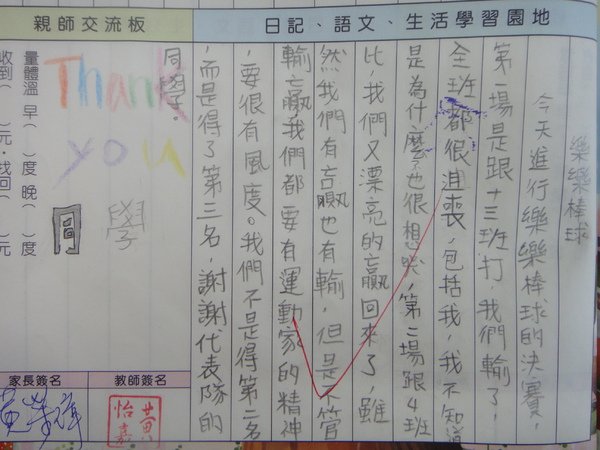 日記、語文、生活學習園地
樂樂棒球
今天進行樂樂棒球的決賽，
第一場是跟十三班打，我們輸了，
全班都很沮喪，包括我，我不知道
是為什麼也很想哭，第二場跟4班
比，我們又漂亮的贏回來了，雖
然我們有贏也有輸，但是不管
輸贏我們都要有運動家的精神
，要很有風度。我們不是得第二名
，而是得了第三名，謝謝代表隊的
同學。
親師交流板
Thank
you
同學
量體溫 早（ ）度 晚（ ）度
收到（ ）元，找回（ ）元
家長簽名
教師簽名
黃怡嘉